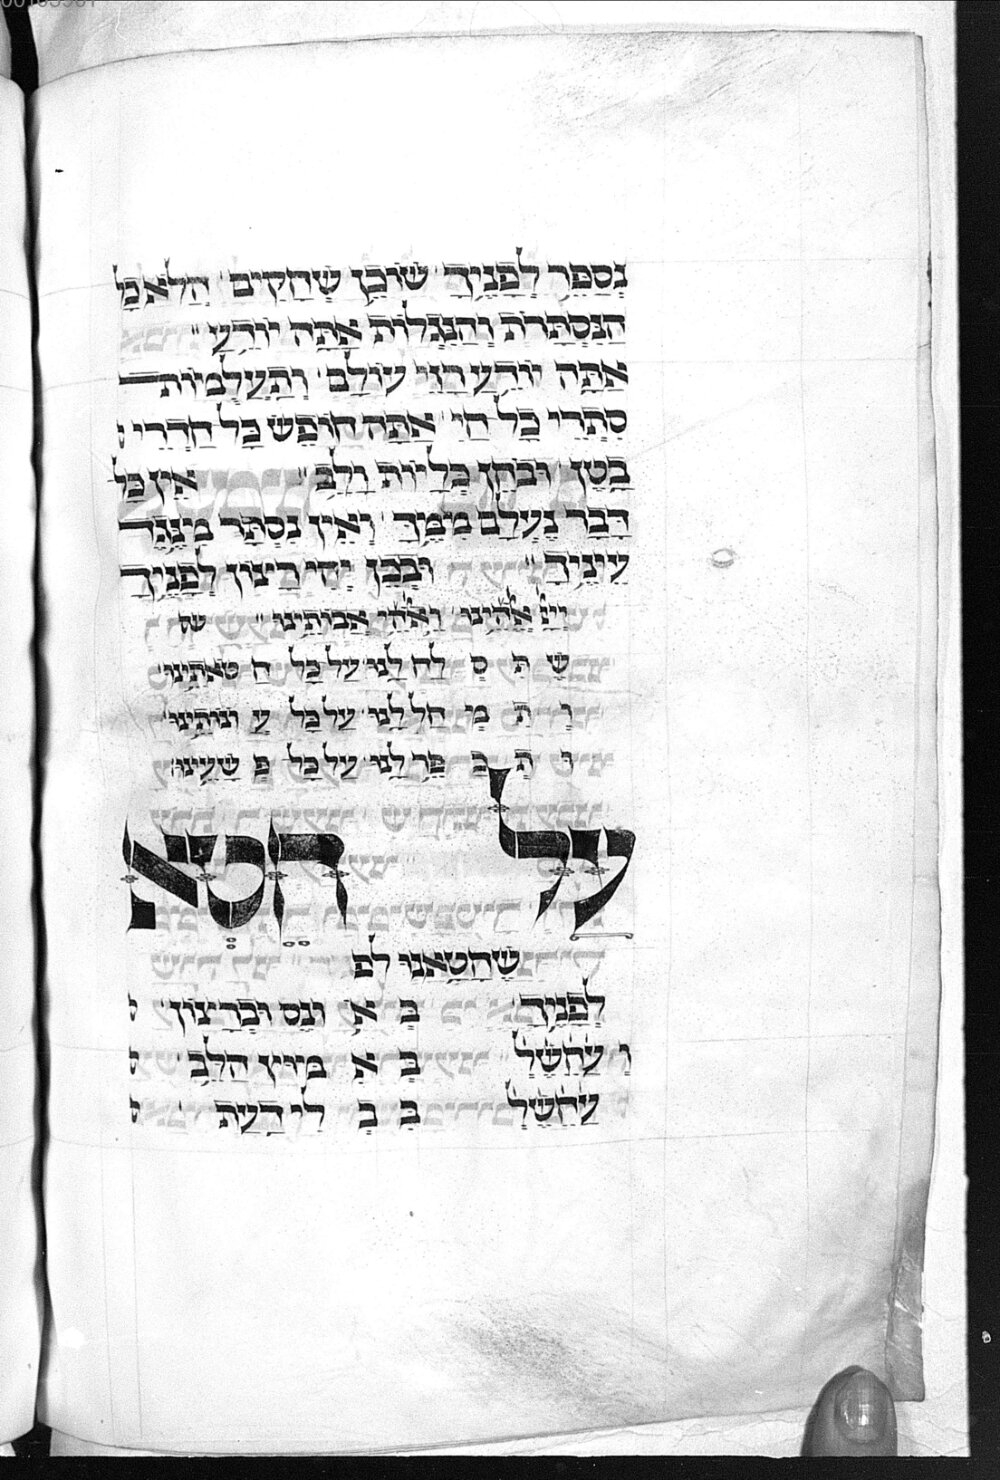 נְסַפֵּר לְפָנֶיךָ שׁוֹכֵן שְׁחָקִים הֲלֹא כָּל
הַנִּסְתָּרֹת וְהַנִּגְלוֹת אַתָּה יוֹדֵעַ
אַתָּה יוֹדֵעַ רָזֵי עוֹלָם וְתַעֲלֻמוֹת
סִתְרֵי כָּל חַי אַתָּה חוֹפֵשׂ כָּל חַדְרֵי
בֶטֶן וּבֹחֵן כְּלָיוֹת וָלֵב אֵין כָּל
דָּבָר נֶעְלָם מִמֶּךָּ וְאֵין נִסְתָּר מִנֶּגֶד
עֵינֶיךָ וּבְכֵן יְהִי רָצוֹן לְפָנֶיךָ
אֱלֹהֵינוּ וֵאלֹהֵי אֲבוֹתֵינוּ
שֶׁ תִּ סְ לַח לָנוּ עַל כָּל חַ טֹּאתֵינוּ
וְ תִ מְ חָל לָנוּ עַל כָּל עֲ וֹנוֹתֵינוּ
וּ תְ כַ פֵּר לָנוּ עַל כָּל פְּ שָׁעֵינוּ
עַל חֵטְא
שֶׁחָטָאנוּ לפ
לְפָנֶיךָ בְּ אֹ ונֶס וּבְרָצוֹן
וְ עַחשֶׁל בְּ אִ מּוּץ הַלֵּב
עַחשֶׁל בִּ בְ לִי דָעַת